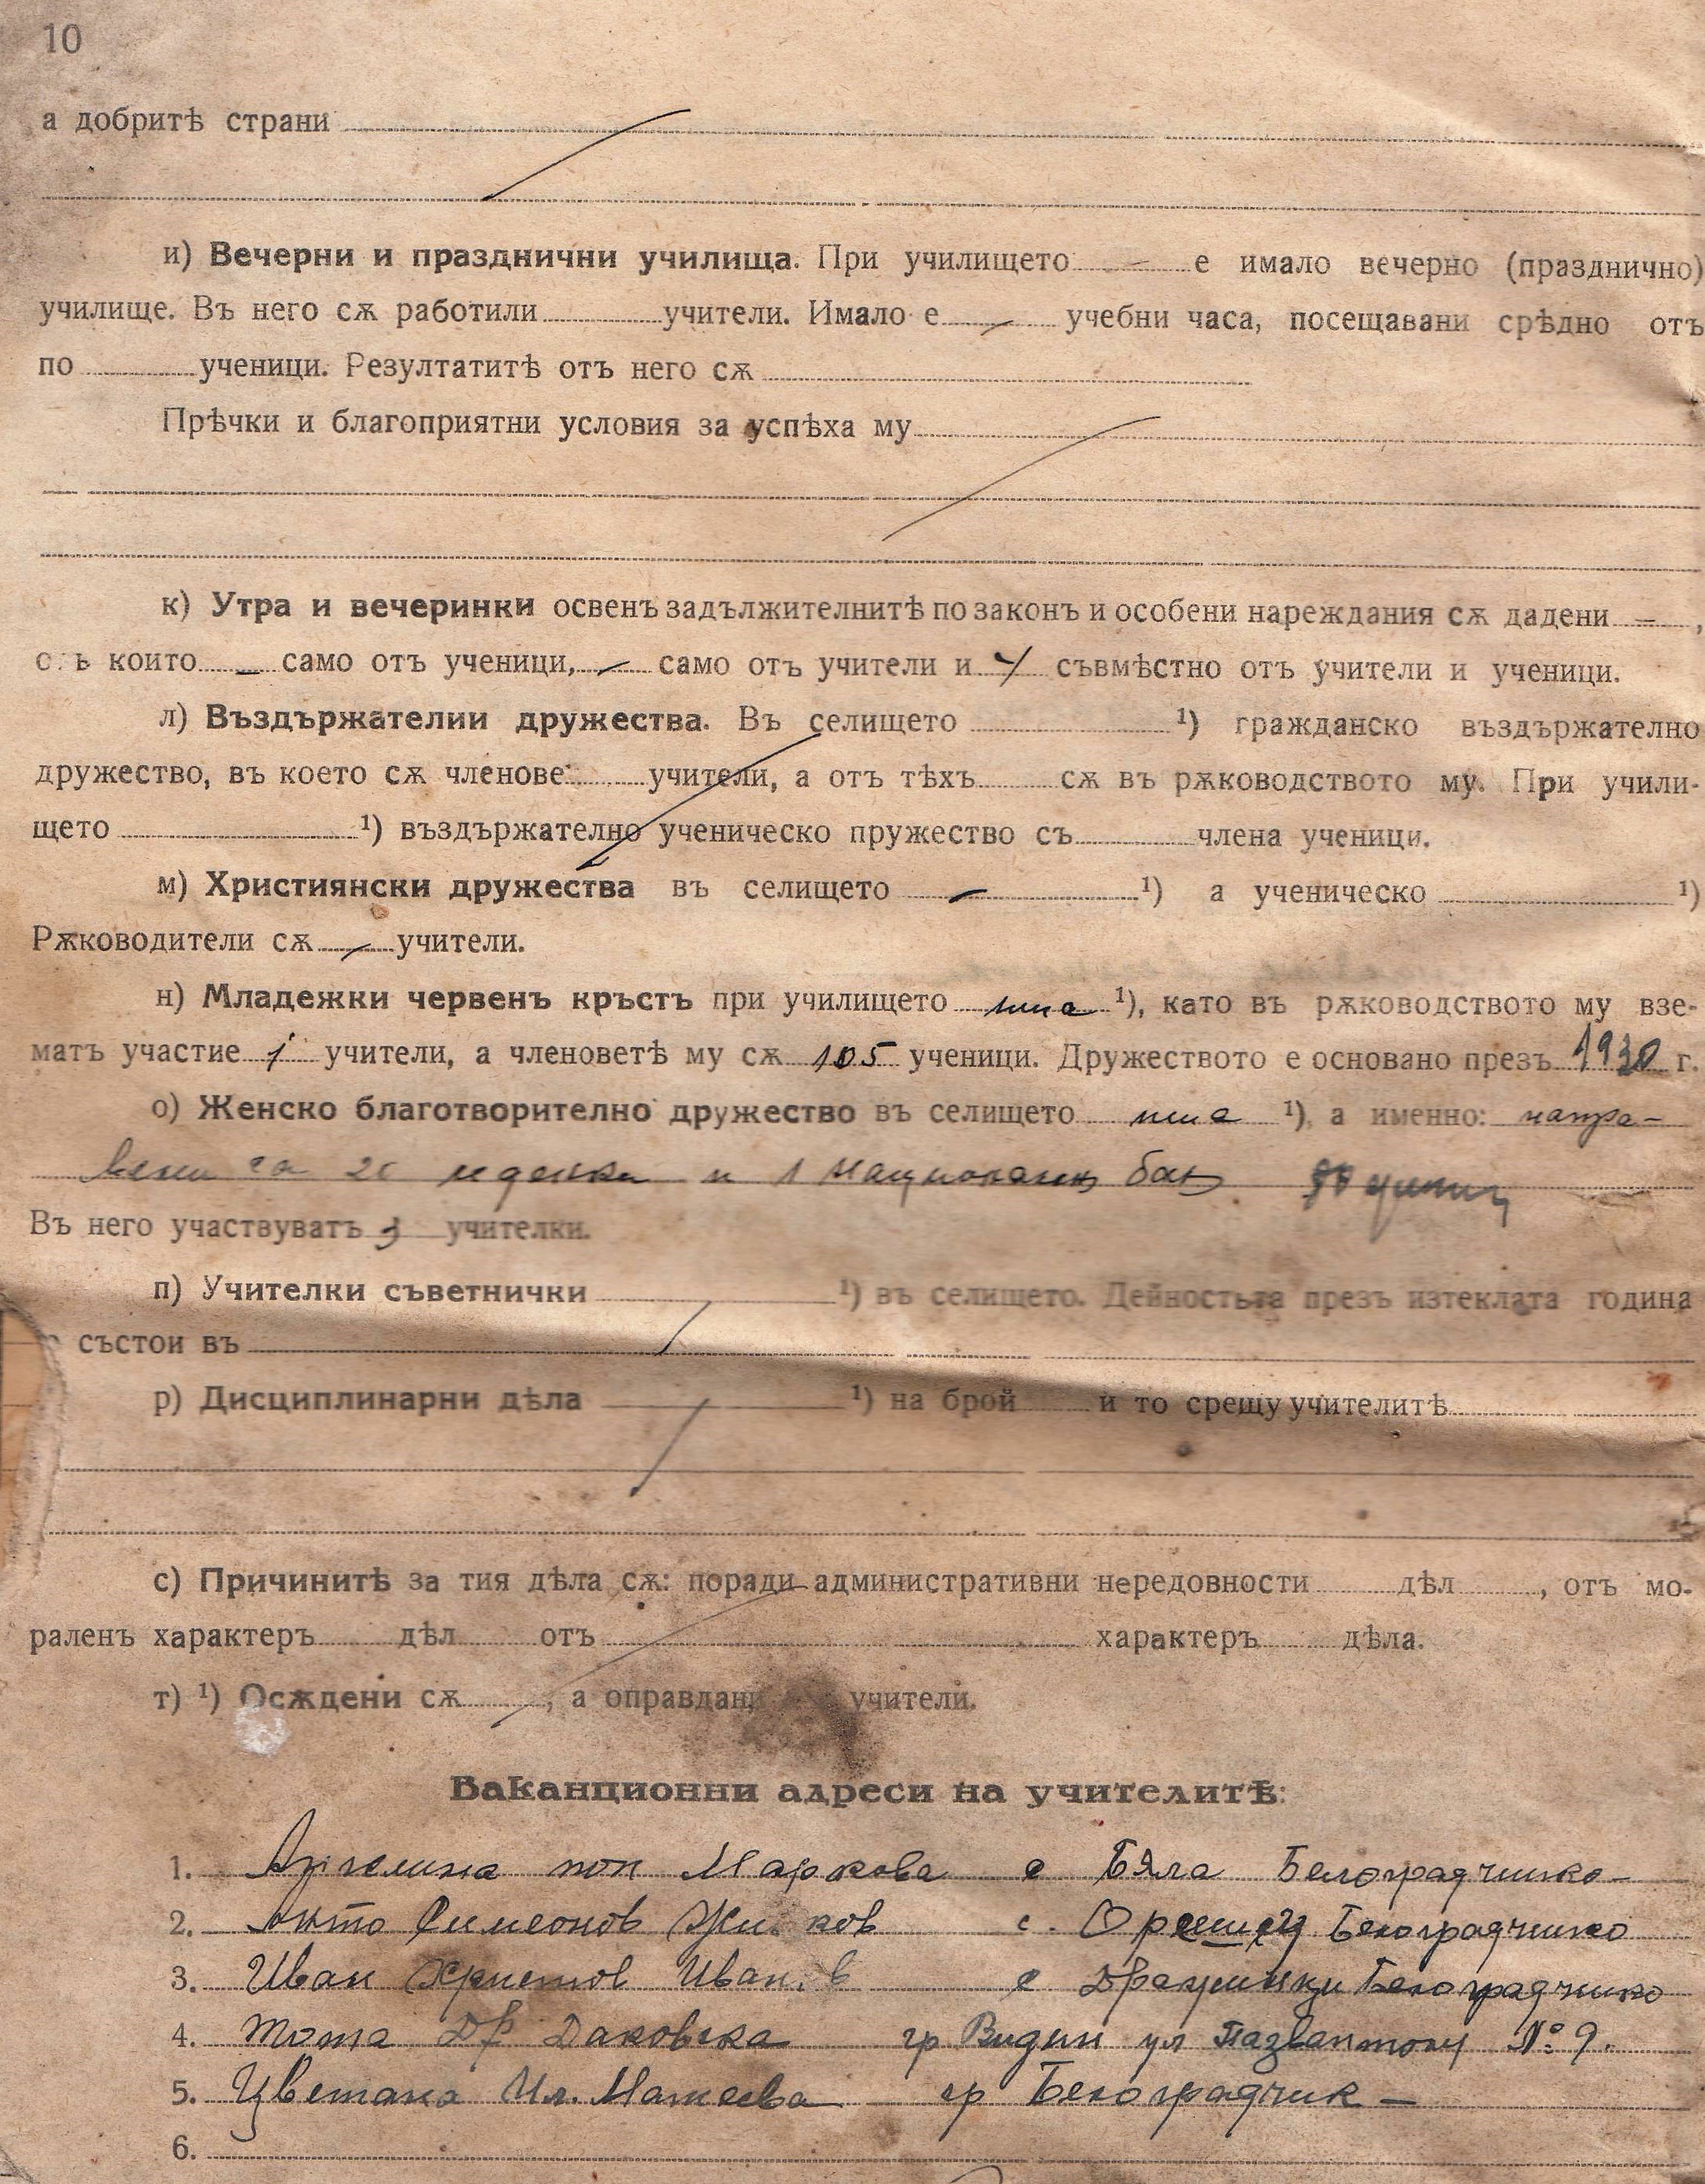 10
а добритѣ страни
и) Вечерни и празднични училища. При училището — е имало вечерно (празднично)
училище. Въ него сѫ работили учители. Имало е — учебни часа, посещавани срѣдно отъ
по ученици. Резултатитѣ отъ него сѫ
Прѣчки и благоприятни условия за успѣха му
к) Утра и вечеринки освенъ задължителнитѣ по законъ и особени нареждания сѫ дадени — ,
отъ които — само отъ ученици, — само отъ учители и 4 съвмѣстно отъ учители и ученици.
л) Въздържателни дружества. Въ селището ¹) гражданско въздържателно
дружество, въ което сѫ членове учители, а отъ тѣхъ сѫ въ рѫководството му. При учили-
щето ¹) въздържателно ученическо пружество съ члена ученици.
м) Християнски дружества въ селището — ¹) а ученическо ¹)
Рѫководители сѫ — учители.
н) Младежки червенъ кръстъ при училището има ¹), като въ рѫководството му взе-
матъ участие 1 учители, а членоветѣ му сѫ 105 ученици. Дружеството е основано презъ 1930 г.
о) Женско благотворително дружество въ селището има ¹), а именно: напра-
вени са 20 и 1 национален бал
Въ него участвуватъ 3 учителки.
п) Учителки съветнички ¹) въ селището. Дейностьта презъ изтеклата година
състои въ
р) Дисциплинарни дѣла ¹) на брой и то срещу учителитѣ
с) Причинитѣ за тия дѣла сѫ: поради административни нередовности дѣл , отъ мо-
раленъ характеръ дѣл отъ характеръ дѣла.
т) ¹) Осѫдени сѫ , а оправдани учители.
Ваканционни адреси на учителитѣ:
1. Ангелина поп Маркова с Бяла Белоградчишко —
2. Анто Симеонов с. Орешец Белоградчишко
3. Иван Христов Иванов с Дражинци Белоградчишко
4. Тота Др Даковска гр Видин ул № 9.
5. Цветана Ил. Матеева гр Белоградчик —
6.